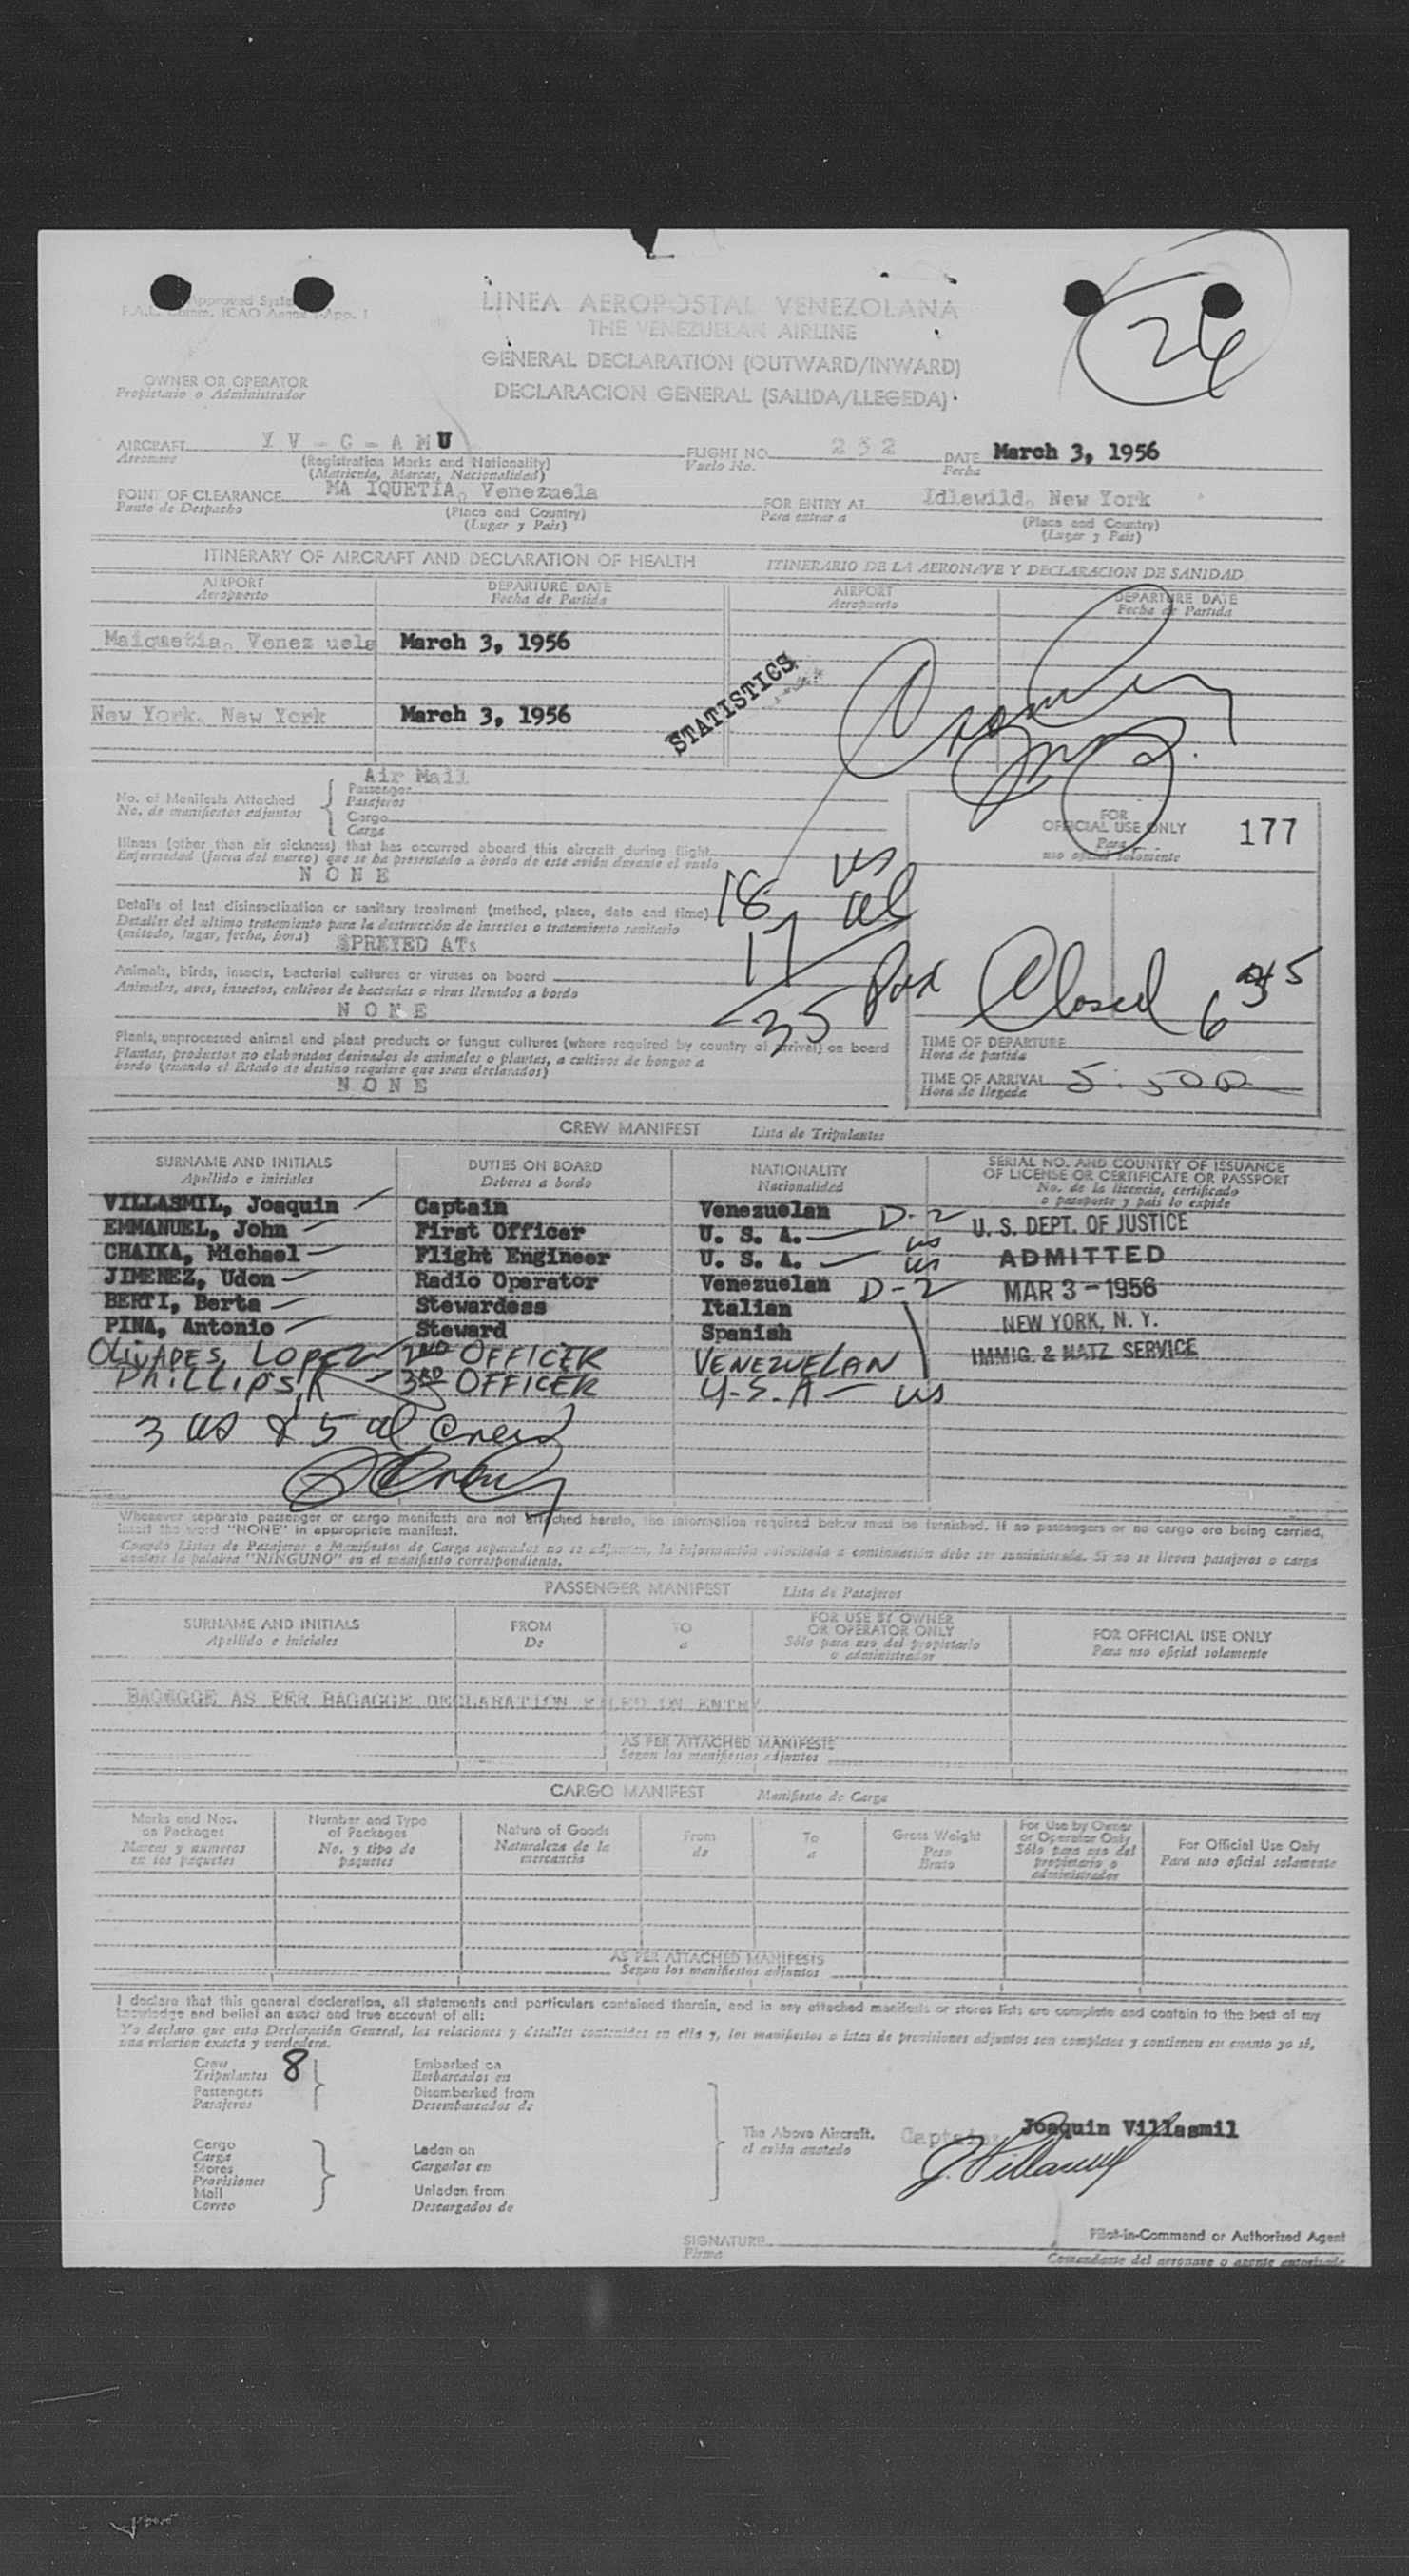 Approved System
F.A.L. Comm. ICAO Annex 9 App. 1
LINEA AEROPOSTAL VENEZOLANA
THE VENEZUELAN AIRLINE
GENERAL DECLARATION (OUTWARD/INWARD)
DECLARACION GENERAL (SALIDA/LLEGEDA)
26
OWNER OR OPERATOR
Propietario o Administrador
AIRCRAFT Y V - C - A M U FLIGHT NO. 252 DATE March 3, 1956
Aeronave (Registration Marks and Nationality) Vuelo No. Fecha
(Matricula, Marcas, Nacionalidad)
POINT OF CLEARANCE MA IQUETIA, Venezuela FOR ENTRY AT Idlewild, New York
Punto de Despacho (Place and Country) Para entrar a (Place and Country)
(Lugar y Pais) (Lugar y Pais)
ITINERARY OF AIRCRAFT AND DECLARATION OF HEALTH ITINERARIO DE LA AERONAVE Y DECLARACION DE SANIDAD
AIRPORT DEPARTURE DATE AIRPORT DEPARTURE DATE
Aeropuerto Fecha de Partida Aeropuerto Fecha de Partida
Maiquetia, Venez uela March 3, 1956
STATISTICS
New York, New York March 3, 1956
Air Mail
No. of Manifests Attached Passenger
No. de manifiestos adjuntos Pasajeros
Cargo
Carga
FOR
OFFICIAL USE ONLY 177
Para
uso oficial solamente
Illness (other than air sickness) that has occurred aboard this aircraft during flight
Enfermedad (fuera del mareo) que se ha presentado a bordo de este avión durante el vuelo
N O N E
18 us
17 al
35 Pax
Details of last disinsectization or sanitary treatment (method, place, date and time)
Detalles del ultimo tratamiento para la destrucción de insectos o tratamiento sanitario
(método, lugar, fecha, hora) SPREYED AT:
Animals, birds, insects, bacterial cultures or viruses on board
Animales, aves, insectos, cultivos de bacterias o virus llevados a bordo
N O N E
Closed 6
Plants, unprocessed animal and plant products or fungus cultures (where required by country of arrival) on board
Plantas, productos no elaborados derivados de animales o plantas, a cultivos de hongos a
bordo (cuando el Estado de destino requiere que sean declarados)
N O N E
TIME OF DEPARTURE
Hora de partida
TIME OF ARRIVAL 5:50
Hora de llegada
CREW MANIFEST Lista de Tripulantes
SURNAME AND INITIALS DUTIES ON BOARD NATIONALITY SERIAL NO. AND COUNTRY OF ISSUANCE
OF LICENSE OR CERTIFICATE OR PASSPORT
Apellido e iniciales Deberes a bordo Nacionalidad No. de la licencia, certificado
o pasaporte y pais lo expide
VILLASMIL, Joaquin Captain Venezuelan D-2
EMMANUEL, John First Officer U. S. A. us
CHAIKA, Michael Flight Engineer U. S. A. us
JIMENEZ, Udon Radio Operator Venezuelan D-2
BERTI, Berta Stewardess Italian
PINA, Antonio Steward Spanish
OLIVARES, LOPEZ 2ND OFFICER VENEZUELAN
PHILLIPS, 3RD OFFICER U.S.A us
U. S. DEPT. OF JUSTICE
ADMITTED
MAR 3 - 1956
NEW YORK, N. Y.
IMMIG. & NATZ SERVICE
3 us & 5 al crew
Whenever separate passenger or cargo manifests are not attached hereto, the information required below must be furnished. If no passengers or no cargo are being carried,
insert the word "NONE" in appropriate manifest.
Cuando Listas de Pasajeros o Manifiestos de Carga separados no se adjuntan, la información solicitada a continuación debe ser suministrada. Si no se lleven pasajeros o carga
anótese la palabra "NINGUNO" en el manifiesto correspondiente.
PASSENGER MANIFEST Lista de Pasajeros
SURNAME AND INITIALS FROM TO FOR USE BY OWNER OR OPERATOR ONLY FOR OFFICIAL USE ONLY
Apellido e iniciales De a Sólo para uso del propietario o administrador Para uso oficial solamente
BAGEGGE AS PER BAGAGGE DECLARATION FILED ON ENTRY
AS PER ATTACHED MANIFESTS
Segun los manifiestos adjuntos
CARGO MANIFEST Manifiesto de Carga
Marks and Nos. on Packages Number and Type of Packages Nature of Goods From To Gross Weight For Use by Owner or Operator Only For Official Use Only
Marcas y numeros en los paquetes No. y tipo de paquetes Naturaleza de la mercancia de a Peso Bruto Sólo para uso del propietario o administrador Para uso oficial solamente
AS PER ATTACHED MANIFESTS
Segun los manifiestos adjuntos
I declare that this general declaration, all statements and particulars contained therein, and in any attached manifests or stores lists are complete and contain to the best of my
knowledge and belief an exact and true account of all:
Yo declaro que esta Declaración General, las relaciones y detalles contenidos en ella y, los manifiestos o listas de provisiones adjuntos son completos y contienen en cuanto yo sé,
una relacion exacta y verdadera.
Crew 8 Embarked on
Tripulantes Embarcados en
Passengers Disembarked from
Pasajeros Desembarcados de
The Above Aircraft. Captain Joaquin Villasmil
el avión anotado J. Villasmil
Cargo Laden on
Carga Cargados en
Stores
Provisiones
Mail Unladen from
Correo Descargados de
SIGNATURE Pilot-in-Command or Authorized Agent
Firma Comandante del aeronave o agente autorizado